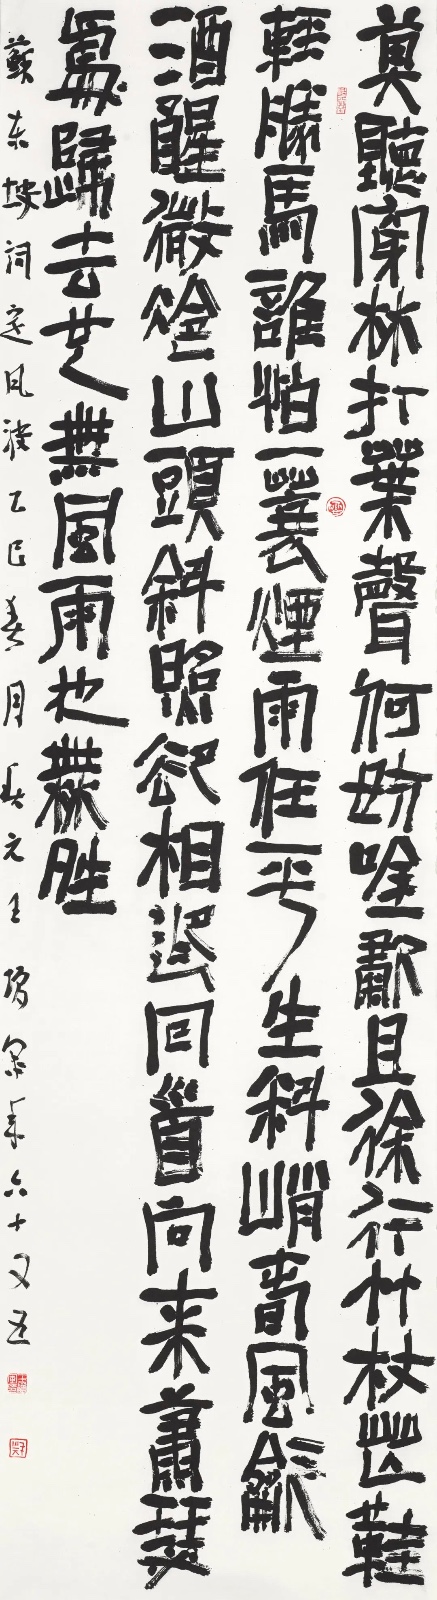 莫聽穿林打葉聲何妨唫歗且徐行竹杖芒鞋
輕勝馬誰怕一蓑煙雨任平生料峭春風龡
酒醒微冷山頭斜照卻相迎回首向来蕭瑟
處歸去也無風雨也無暒
蘇東坡詞定風波乙巳春月年六十又五